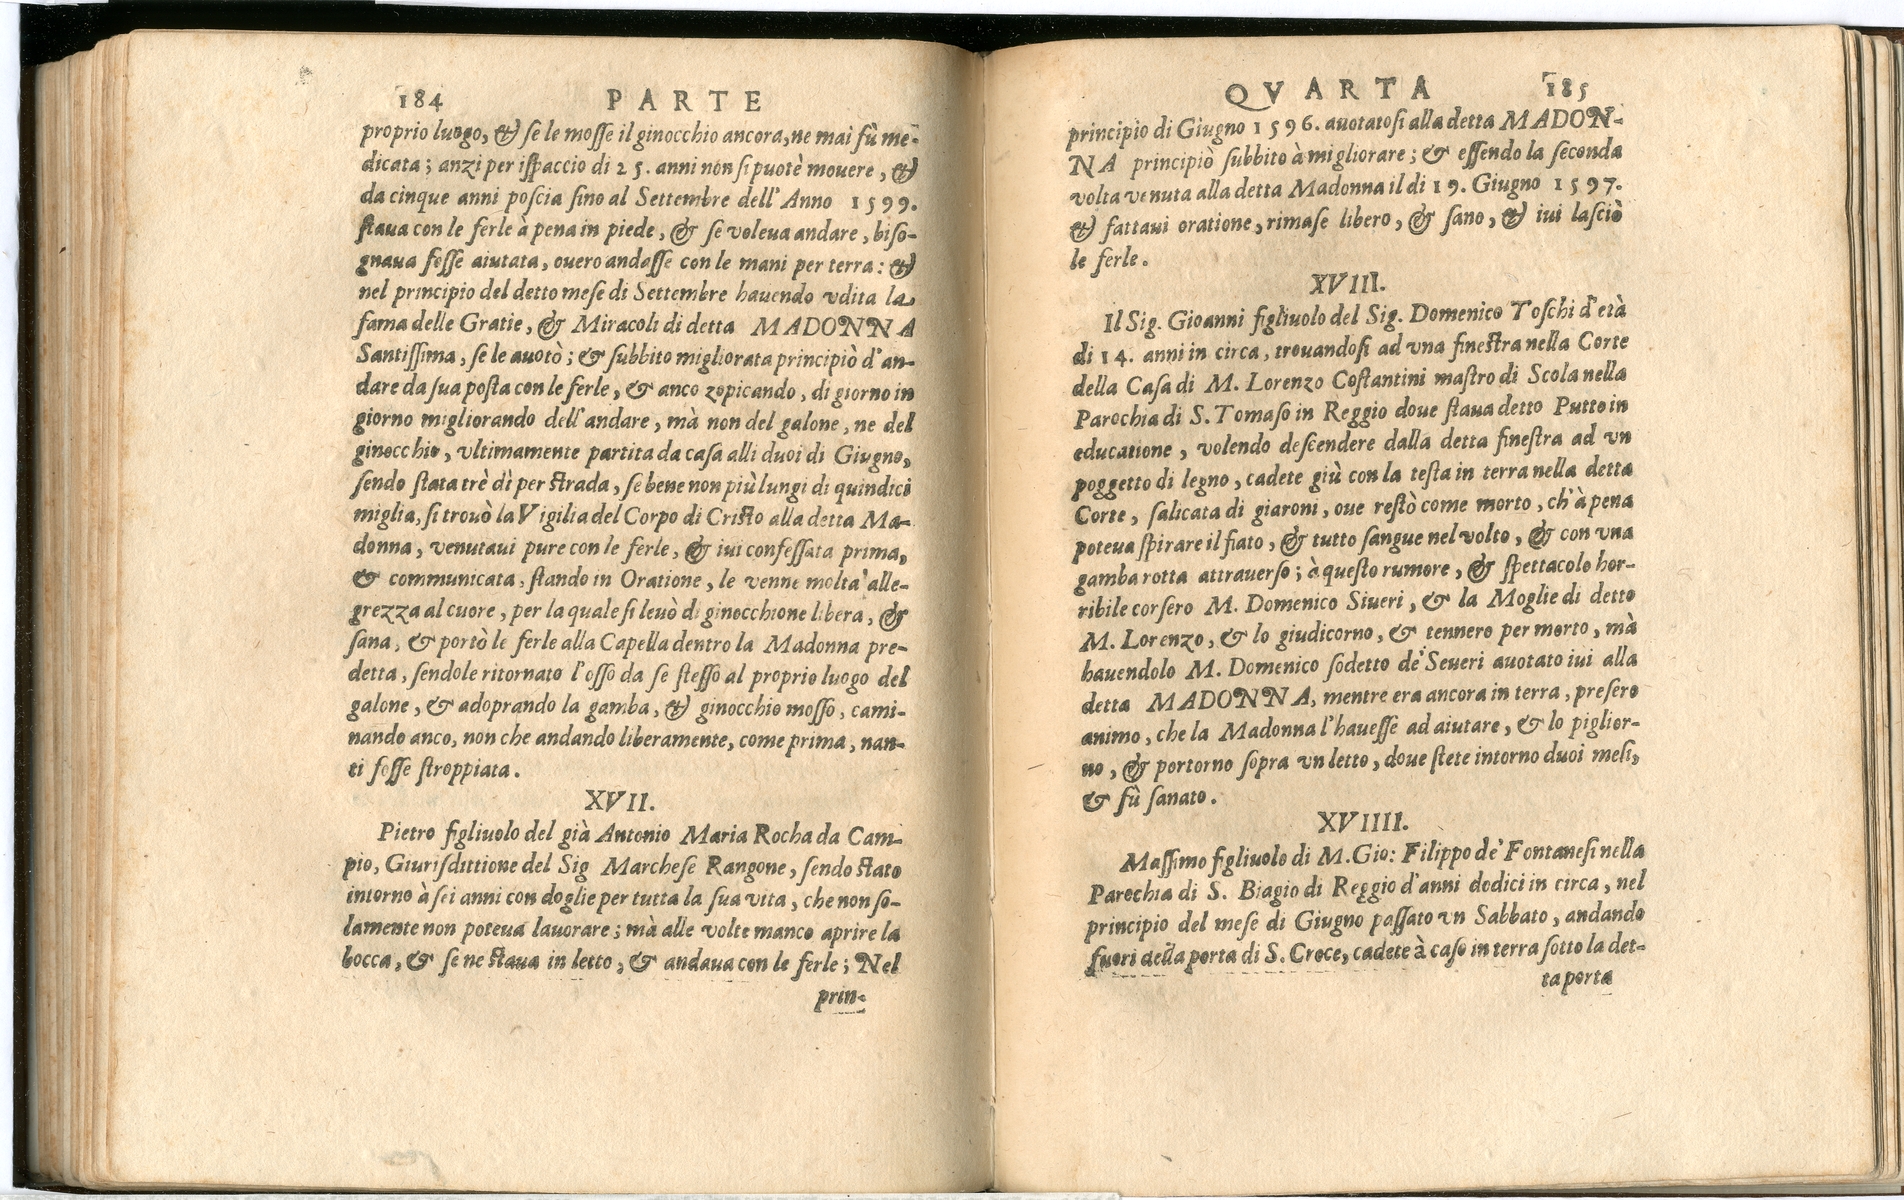 184 PARTE
proprio luogo, & se le mosse il ginocchio ancora, ne mai fù me-
dicata; anzi per ispaccio di 25. anni non si puotè mouere, &
da cinque anni poscia fino al Settembre dell'Anno 1599.
staua con le ferle à pena in piede, & se voleua andare, biso-
gnaua fosse aiutata, ouero andasse con le mani per terra: &
nel principio del detto mese di Settembre hauendo vdita la
fama delle Gratie, & Miracoli di detta MADONNA
Santissima, se le auotò; & subbito migliorata principiò d'an-
dare da sua posta con le ferle, & anco zopicando, di giorno in
giorno migliorando dell'andare, mà non del galone, ne del
ginocchio, vltimamente partita da casa alli duoi di Giugno,
sendo stata trè dì per strada, se bene non più lungi di quindici
miglia, si trouò la Vigilia del Corpo di Cristo alla detta Ma-
donna, venutaui pure con le ferle, & iui confessata prima,
& communicata, stando in Oratione, le venne molta alle-
grezza al cuore, per la quale si leuò di ginocchione libera, &
sana, & portò le ferle alla Capella dentro la Madonna pre-
detta, sendole ritornato l'osso da se stesso al proprio luogo del
galone, & adoprando la gamba, & ginocchio mosso, cami-
nando anco, non che andando liberamente, come prima, nan-
ti fosse stroppiata.
XVII.
Pietro figliuolo del già Antonio Maria Rocha da Cam-
pio, Giurisdittione del Sig Marchese Rangone, sendo stato
intorno à sei anni con doglie per tutta la sua vita, che non so-
lamente non poteua lauorare; mà alle volte manco aprire la
bocca, & se ne staua in letto, & andaua con le ferle; Nel
prin-
QVARTA 185
principio di Giugno 1596. auotatosi alla detta MADON-
NA principiò subbito à migliorare; & essendo la seconda
volta venuta alla detta Madonna il di 19. Giugno 1597.
& fattaui oratione, rimase libero, & sano, & iui lasciò
le ferle.
XVIII.
Il Sig. Gioanni figliuolo del Sig. Domenico Toschi d'età
di 14. anni in circa, trouandosi ad vna finestra nella Corte
della Casa di M. Lorenzo Costantini mastro di Scola nella
Parochia di S. Tomaso in Reggio doue staua detto Putto in
educatione, volendo descendere dalla detta finestra ad vn
poggetto di legno, cadete giù con la testa in terra nella detta
Corte, salicata di giaroni, oue restò come morto, ch'à pena
poteua spirare il fiato, & tutto sangue nel volto, & con vna
gamba rotta attrauerso; à questo rumore, & spettacolo hor-
ribile corsero M. Domenico Siueri, & la Moglie di detto
M. Lorenzo, & lo giudicorno, & tennero per morto, mà
hauendolo M. Domenico sodetto de' Seueri auotato iui alla
detta MADONNA, mentre era ancora in terra, presero
animo, che la Madonna l'hauesse ad aiutare, & lo piglior-
no, & portorno sopra vn letto, doue stete intorno duoi mesi,
& fù sanato.
XVIIII.
Massimo figliuolo di M. Gio: Filippo de' Fontanesi nella
Parochia di S. Biagio di Reggio d'anni dodici in circa, nel
principio del mese di Giugno passato vn Sabbato, andando
fuori della porta di S. Croce, cadete à caso in terra sotto la det-
ta porta